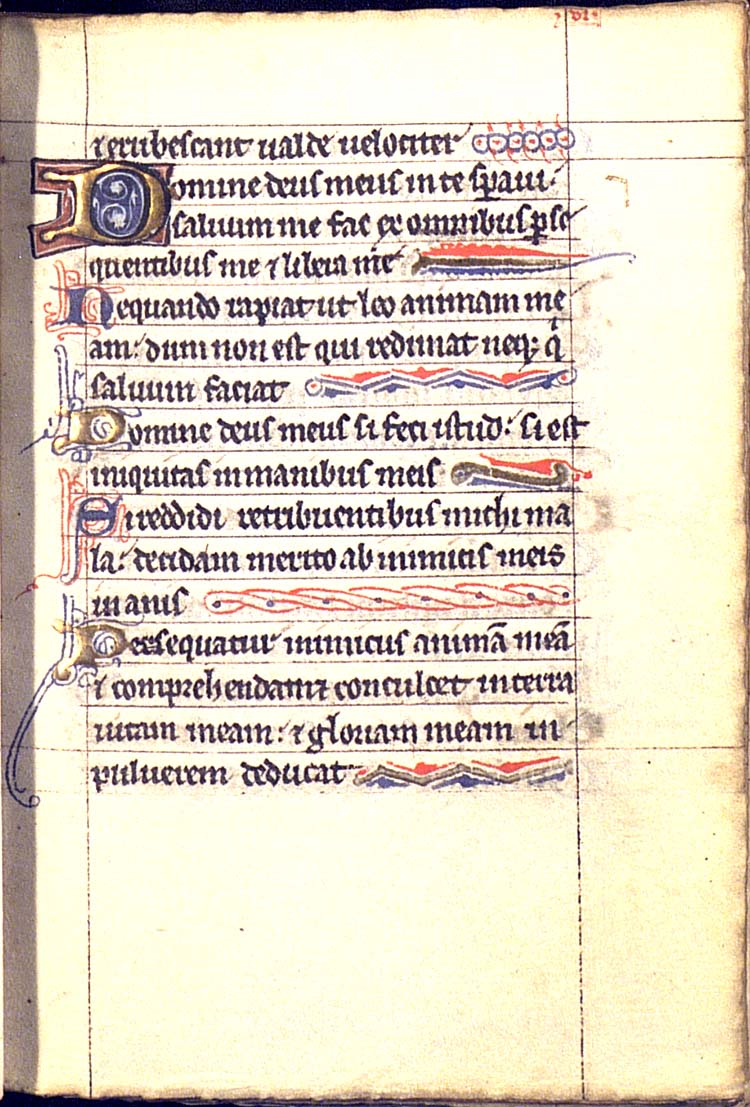 vi.
⁊ erubescant ualde uelociter
Domine deus meus in te speraui.
saluum me fac ex omnibus ꝑse
quentibus me ⁊ libera me
Nequando rapiat ut leo animam me
am: dum non est qui redimat neqꝫ qͥ
saluum faciat
Domine deus meus si feci istud: si est
iniquitas in manibus meis
Si reddidi retribuentibus michi ma
la: decidam merito ab inimicis meis
inanis
Persequatur inimicus animā meā
⁊ comprehendat ⁊ conculcet in terra
uitam meam: ⁊ gloriam meam in
puluerem deducat